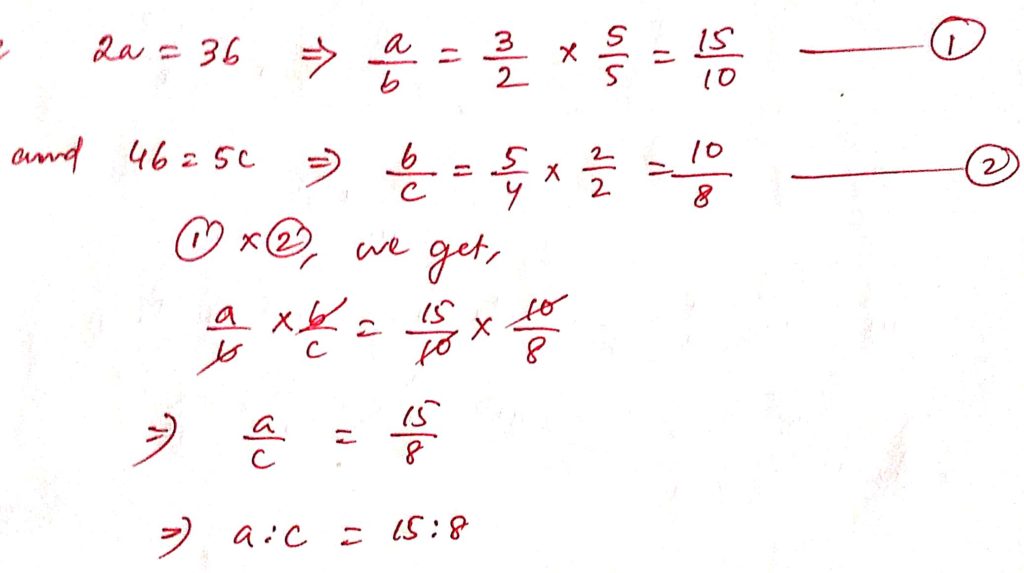 2a = 3b ⇒ a/b = 3/2 × 5/5 = 15/10 ——— ①
and 4b = 5c ⇒ b/c = 5/4 × 2/2 = 10/8 ——— ②
① × ②, we get,
a/b × b/c = 15/10 × 10/8
⇒ a/c = 15/8
⇒ a:c = 15:8